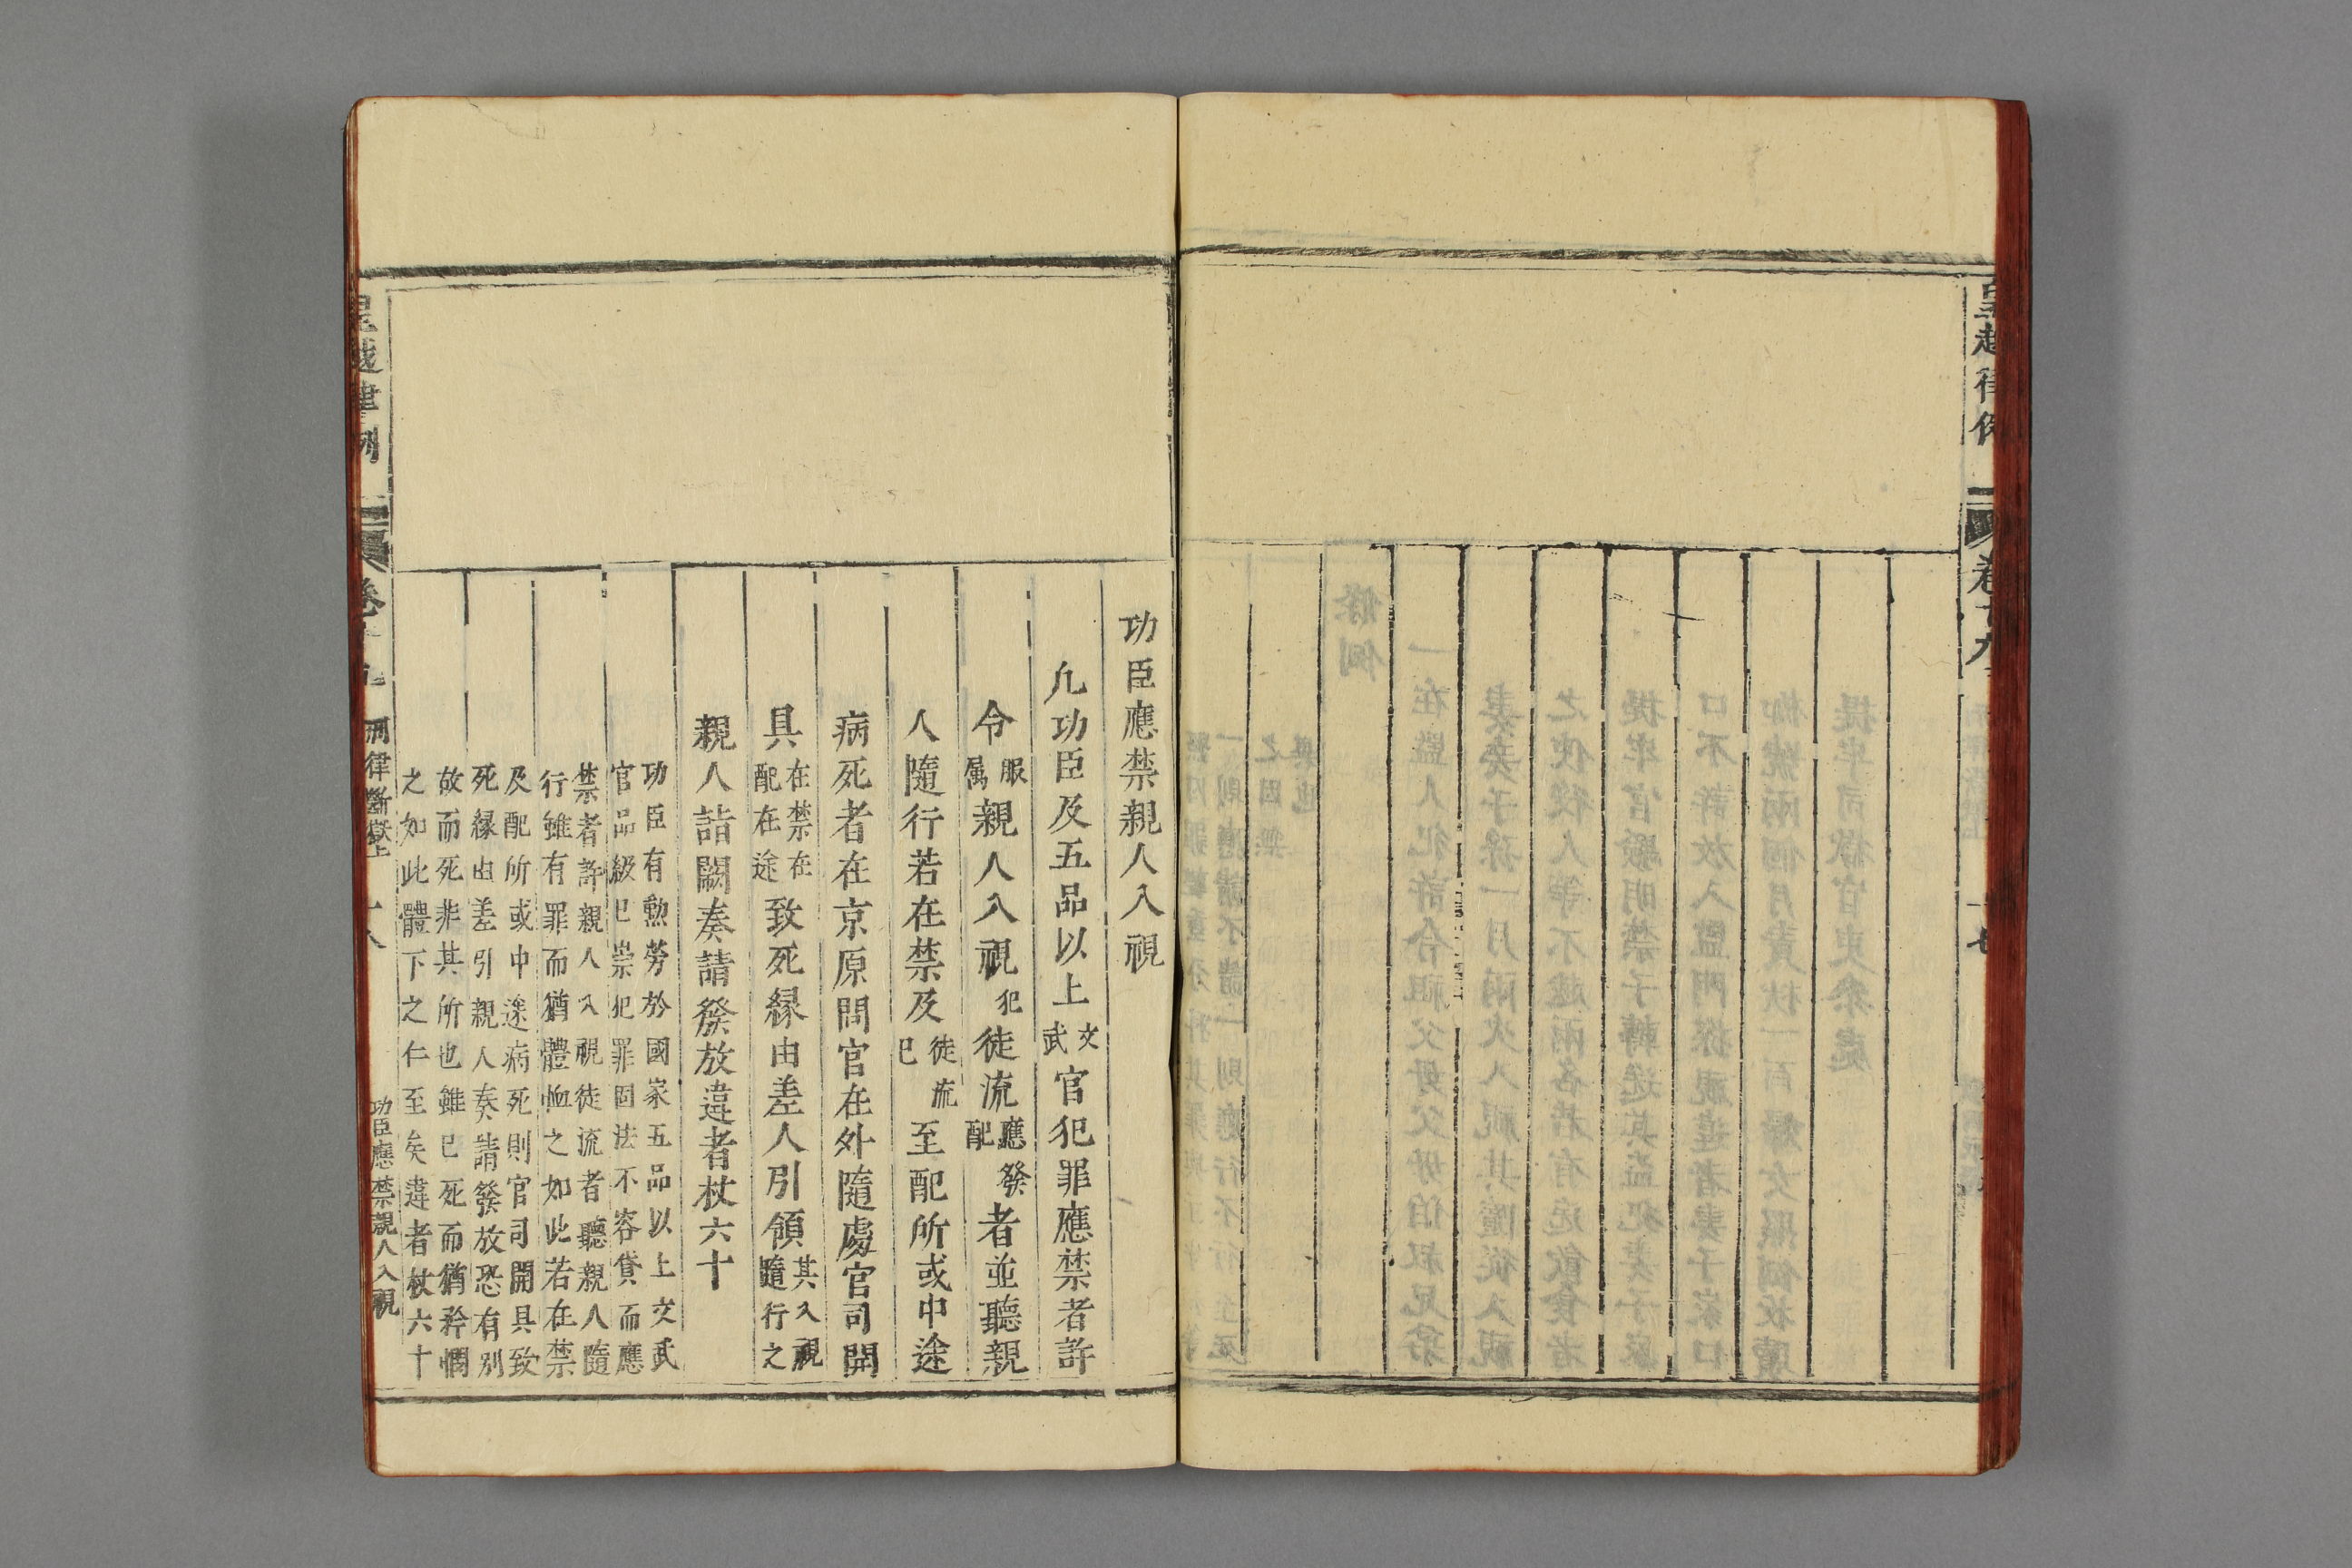 皇越律例
卷十九
十七
功臣應禁親人入視
凡功臣及五品以上文武官犯罪應禁者許
令服属親人入視犯徒流應發配者並聽親
人隨行若在禁及徒流已至配所或中途
病死者在京原問官在外隨處官司開
具在禁在配在途致死縁由差人引領其入視隨行之
親人詣闕奏請發放違者杖六十
功臣有勲勞於國家五品以上文武
官品級已崇犯罪固法不容貸而應
禁者許親人入視徒流者聽親人隨
行雖有罪而猶體恤之如此若在禁
及配所或中途病死則官司開具致
死縁由差引親人奏請發放恐有別
故而死非其所也雖已死而猶矜憫
之如此體下之仁至矣違者杖六十
皇越律例
卷十九
刑律斷獄上
十八
功臣應禁親人入視